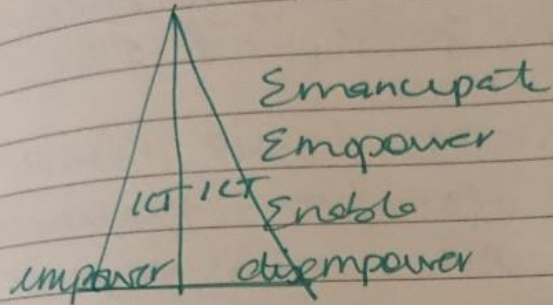 Emancipate
Emopower
ICT ICT Enable
empower disempower